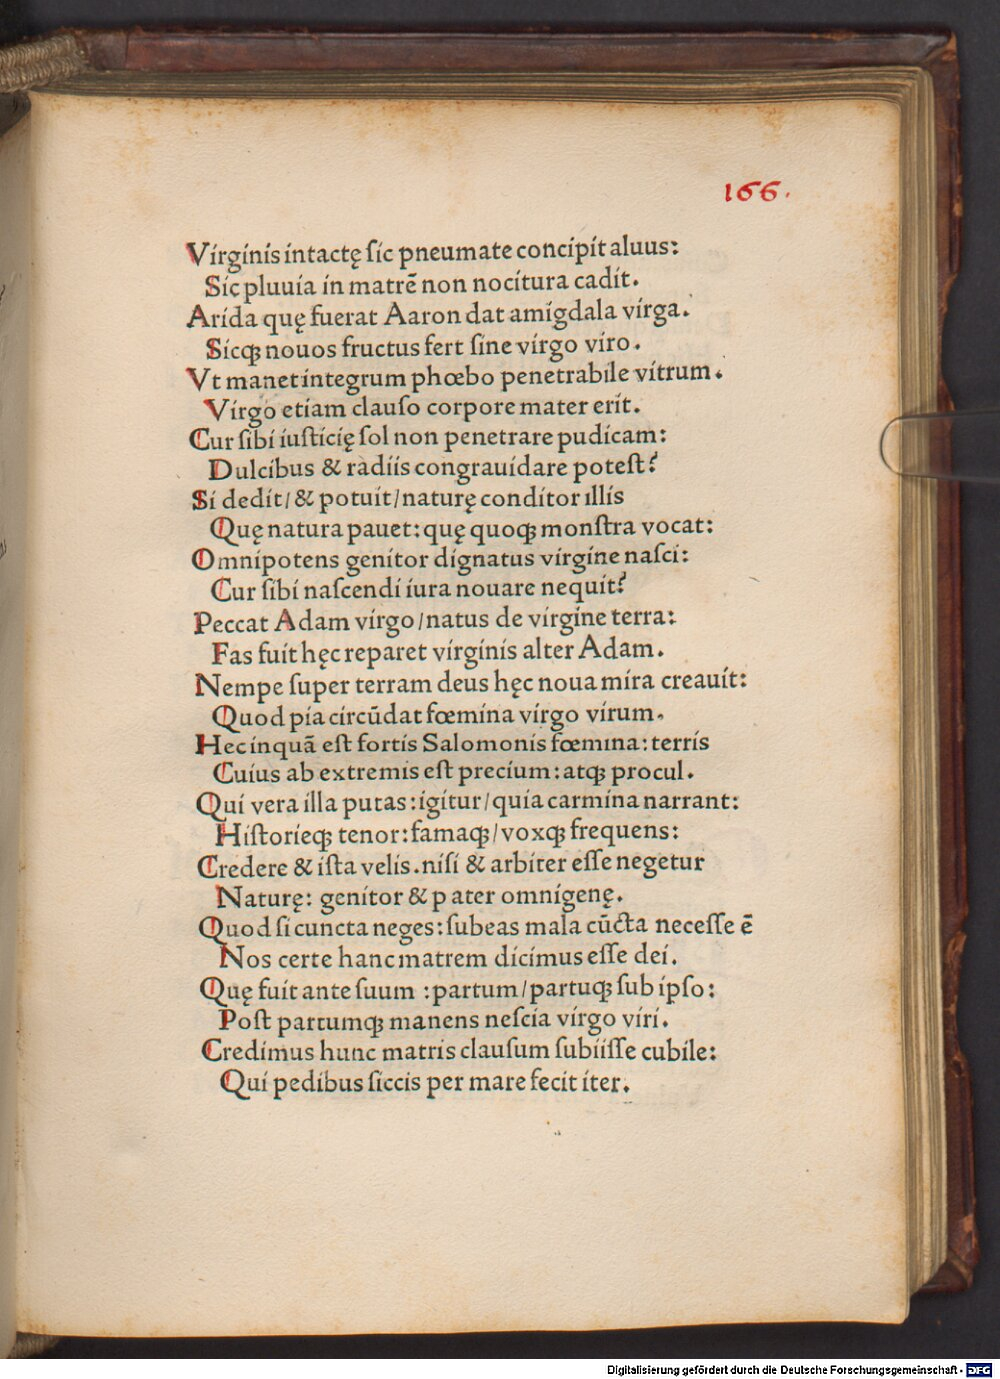 166.
Virginis intactę sic pneumate concipit aluus:
Sic pluuia in matrē non nocitura cadit.
Arida quę fuerat Aaron dat amigdala virga.
Sicqꝫ nouos fructus fert sine virgo viro.
Vt manet integrum phœbo penetrabile vitrum.
Virgo etiam clauso corpore mater erit.
Cur sibi iusticię sol non penetrare pudicam:
Dulcibus & radiis congrauidare potest?
Si dedit/& potuit/naturę conditor illis
Quę natura pauet:quę quoqꝫ monstra vocat:
Omnipotens genitor dignatus virgine nasci:
Cur sibi nascendi iura nouare nequit?
Peccat Adam virgo/natus de virgine terra:
Fas fuit hęc reparet virginis alter Adam.
Nempe super terram deus hęc noua mira creauit:
Quod pia circūdat fœmina virgo virum.
Hec inquā est fortis Salomonis fœmina:terris
Cuius ab extremis est precium:atqꝫ procul.
Qui vera illa putas:igitur/quia carmina narrant:
Historieqꝫ tenor:famaqꝫ/voxqꝫ frequens:
Credere & ista velis.nisi & arbiter esse negetur
Naturę: genitor & p ater omnigenę.
Quod si cuncta neges:subeas mala cūcta necesse ē
Nos certe hanc matrem dicimus esse dei.
Quę fuit ante suum :partum/partuqꝫ sub ipso:
Post partumqꝫ manens nescia virgo viri.
Credimus hunc matris clausum subiisse cubile:
Qui pedibus siccis per mare fecit iter.
Digitalisierung gefördert durch die Deutsche Forschungsgemeinschaft - DFG